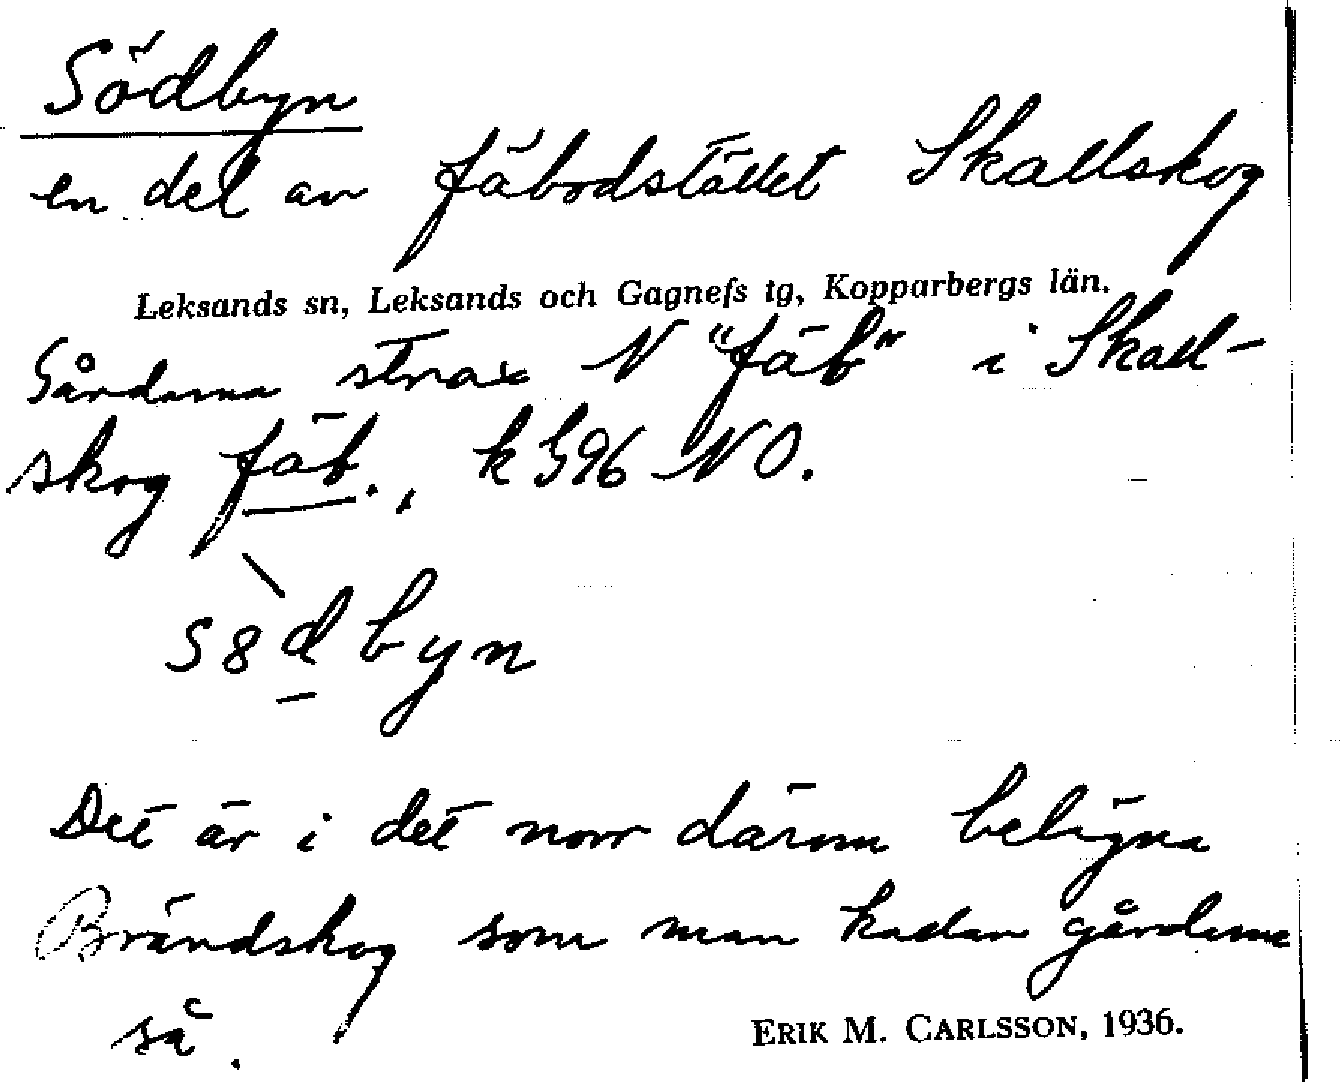 Södbyn
en del av fäbodstället Skallskog
Leksands sn, Leksands och Gagnefs tg, Kopparbergs län.
Gårdarna strax N "fäb" i Skall-
skog fäb., k G96 NO.
s8d byn
Det är i det norr därom belägna
Brändskog som man kallar gårdarna
så.
ERIK M. CARLSSON, 1936.